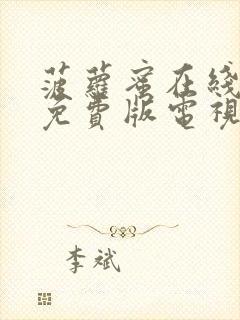 菠蘿蜜在綫
免費版電視
李斌